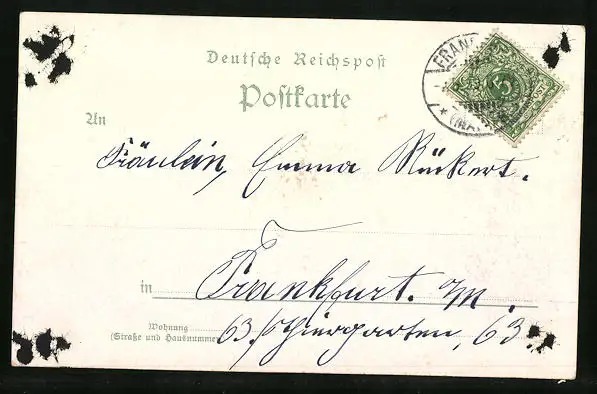 Deutsche Reichspost
Postkarte
FRANK
An
Fräulein Emma Rückert.
in Frankfurt. M.
Wohnung
(Straße und Hausnummer
63. Thiergarten, 63.